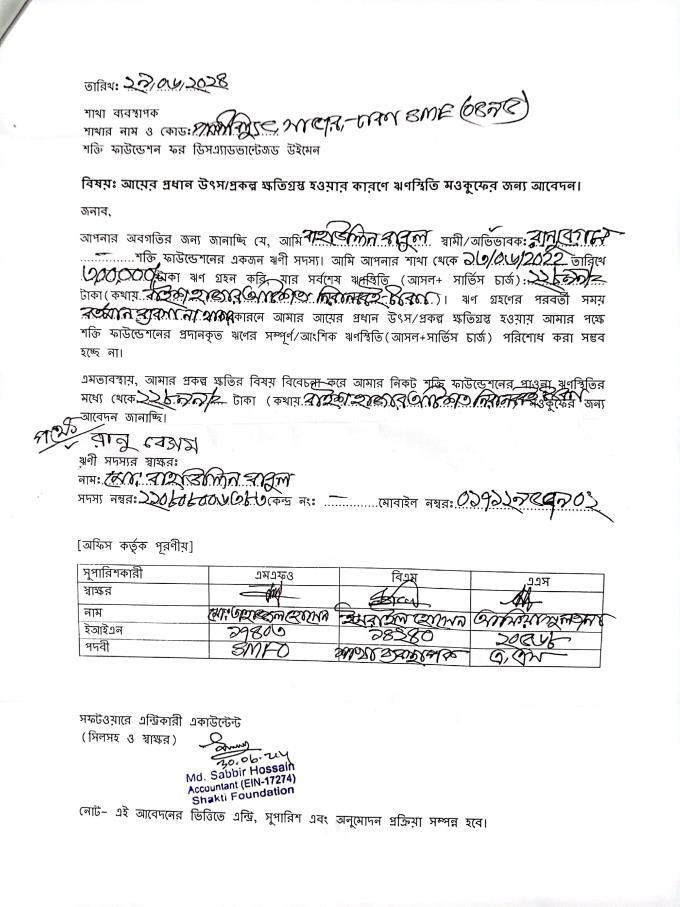 তারিখ: ২৯/০৬/২০২৪
শাখা ব্যবস্থাপক
শাখার নাম ও কোড: ঢাকা SME
শক্তি ফাউন্ডেশন ফর ডিসএ্যাডভান্টেজড উইমেন
বিষয়: আয়ের প্রধান উৎস/প্রকল্প ক্ষতিগ্রস্থ হওয়ার কারণে ঋণস্থিতি মওকুফের জন্য আবেদন।
জনাব,
আপনার অবগতির জন্য জানাচ্ছি যে, আমি বাবুল স্বামী/অভিভাবক: রানু বেগম
শক্তি ফাউন্ডেশনের একজন ঋণী সদস্য। আমি আপনার শাখা থেকে ১৩/০৬/2022 তারিখে
৩০০,০০০/ টাকা ঋণ গ্রহন করি, যার সর্বশেষ ঋণস্থিতি (আসল+ সার্ভিস চার্জ):
টাকা (কথায়: বাইশ হাজার আটশত নিরানব্বই টাকা)। ঋণ গ্রহণের পরবর্তী সময়
বর্তমান ব্যবসা না থাকার কারনে আমার আয়ের প্রধান উৎস/প্রকল্প ক্ষতিগ্রস্থ হওয়ায় আমার পক্ষে
শক্তি ফাউন্ডেশনের প্রদানকৃত ঋণের সম্পূর্ণ/আংশিক ঋণস্থিতি(আসল+সার্ভিস চার্জ) পরিশোধ করা সম্ভব
হচ্ছে না।
এমতাবস্থায়, আমার প্রকল্প ক্ষতির বিষয় বিবেচনা করে আমার নিকট শক্তি ফাউন্ডেশনের পাওনা ঋণস্থিতির
মধ্যে থেকে টাকা (কথায়: বাইশ হাজার আটশত নিরানব্বই টাকা মওকুফের জন্য
আবেদন জানাচ্ছি।
পক্ষে রানু বেগম
ঋণী সদস্যর স্বাক্ষর:
নাম: মো: বাবুল
সদস্য নম্বর: কেন্দ্র নং: মোবাইল নম্বর:
[অফিস কর্তৃক পূরণীয়]
সুপারিশকারী এমএফও বিএম এএস
স্বাক্ষর
নাম মো: হোসেন ইসরাইল হোসেন
ইআইএন ১৭৪০৩ ১৪২৪০ ২০৫৬৮
পদবী SMFO শাখা ব্যবস্থাপক এ,এস
সফটওয়ারে এন্ট্রিকারী একাউন্টেন্ট
(সিলসহ ও স্বাক্ষর)
30.06.24
Md. Sabbir Hossain
Accountant (EIN-17274)
Shakti Foundation
নোট- এই আবেদনের ভিত্তিতে এন্ট্রি, সুপারিশ এবং অনুমোদন প্রক্রিয়া সম্পন্ন হবে।